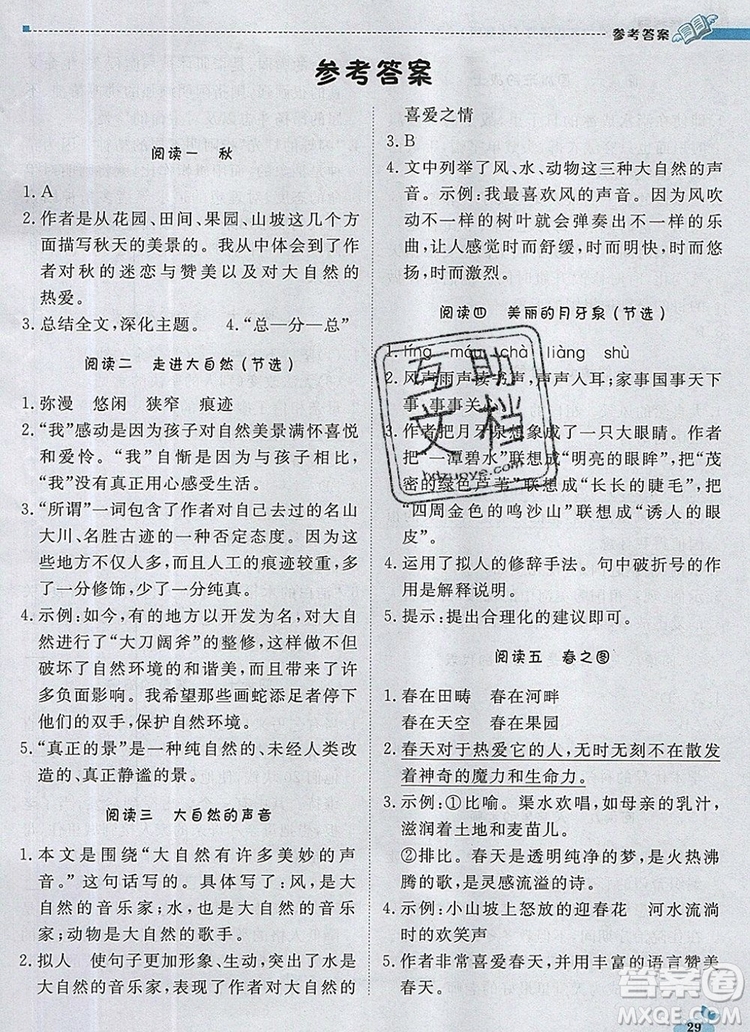 参考答案
参考答案
阅读一 秋
1. A
2. 作者是从花园、田间、果园、山坡这几个方
面描写秋天的美景的。我从中体会到了作
者对秋的迷恋与赞美以及对大自然的
热爱。
3. 总结全文，深化主题。 4.“总—分—总”
阅读二 走进大自然(节选)
1. 弥漫 悠闲 狭窄 痕迹
2.“我”感动是因为孩子对自然美景满怀喜悦
和爱怜。“我”自惭是因为与孩子相比，
“我”没有真正用心感受生活。
3.“所谓”一词包含了作者对自己去过的名山
大川、名胜古迹的一种否定态度。因为这
些地方不仅人多，而且人工的痕迹过重，多
了一分修饰，少了一分纯真。
4. 示例：如今，有的地方以开发为名，对大自
然景观进行“大刀阔斧”的整修，不但
破坏了自然环境的和谐美，而且带来了许
多负面影响。我希望这些画蛇添足者停下
他们的双手，保护自然环境。
5.“真正的景”是一种纯自然的、未经人类改
造的、真正静谧的景。
阅读三 大自然的声音
1. 本文是围绕“大自然有许多美妙的声
音。”这句话写的。具体写了风，是大
自然的音乐家；水，也是大自然的音乐
家；动物是大自然的歌手。
2. 拟人 使句子更加形象、生动，突出了水是
大自然的音乐家，表现了作者对大自然的
喜爱之情
3. B
4. 文中列举了风、水、动物这三种大自然的
声音。示例：我最喜欢风的声音。因为风吹
动不一样的树叶就会弹奏出不一样的乐
曲，让人感觉时而舒缓，时而明快，时而悠
扬，时而激烈。
阅读四 美丽的月牙泉(节选)
1. líng chà liàng shù
2. 风声雨声读书声，声声入耳；家事国事天下
事，事事关
3. 作者把月牙泉想象成了一只大眼睛。作者
把“一潭碧水”联想成“明亮的眼眸”，把“茂
密的绿色芦苇”联想成“长长的睫毛”，把
“四周金色的鸣沙山”联想成“诱人的眼
皮”。
4. 运用了拟人的修辞手法。句中破折号的作
用是解释说明。
5. 提示：提出合理化的建议即可。
阅读五 春之图
1. 春在田畴 春在河畔
春在天空 春在果园
2. 春天对于热爱它的人，无时无刻不在散发
着神奇的魔力和生命力。
3. 示例：①比喻。渠水欢唱，如母亲的乳汁，
滋润着土地和麦苗儿。
②排比。春天是透明纯洁的梦，是火热沸
腾的歌，是灵感流溢的诗。
4. 示例：小山坡上怒放的迎春花 河水流淌
时的欢笑声
5. 作者非常喜爱春天，并用丰富的语言赞美
春天。
互助
文档
hdzuoye.com
答案圈
MXQE.COM
29